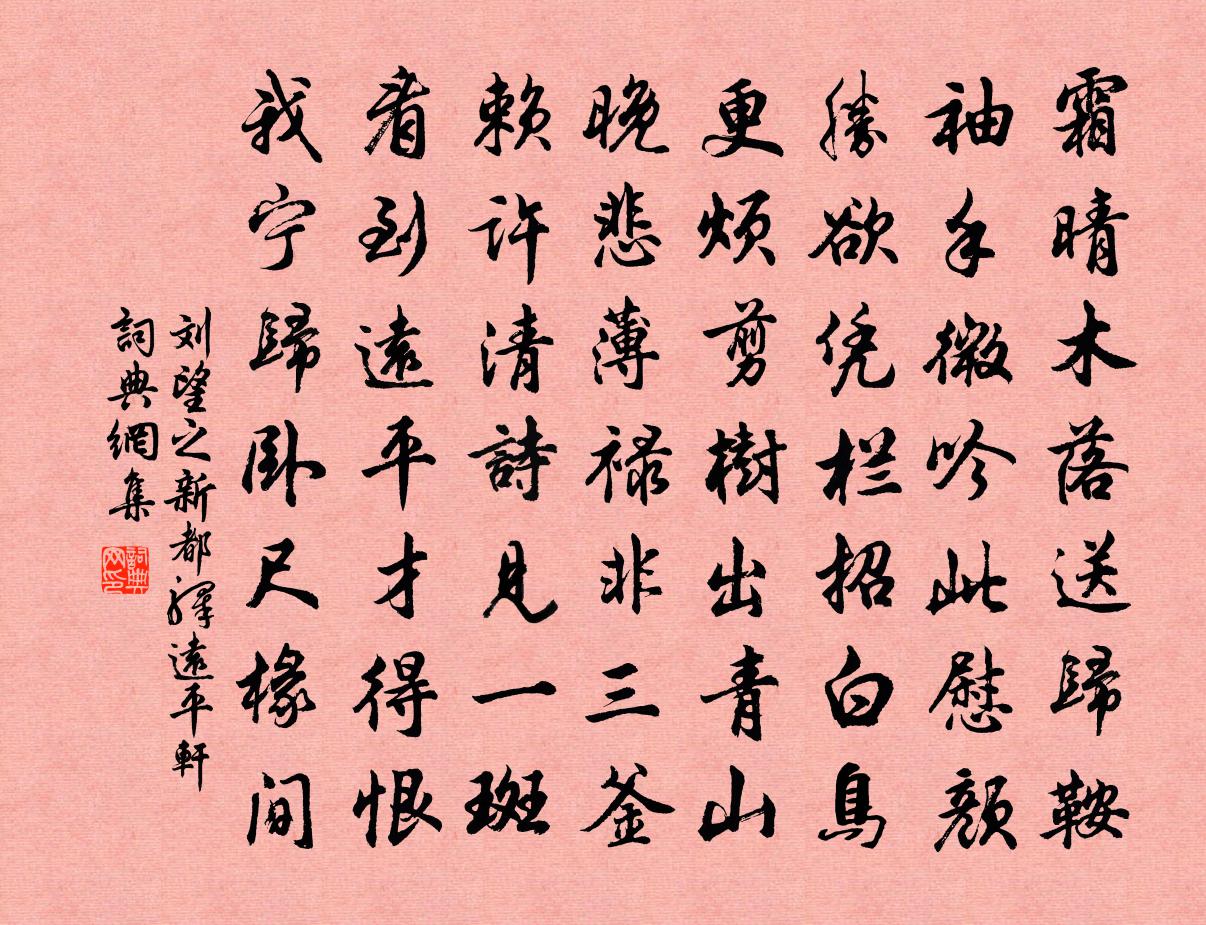 霜晴木落送歸鞍
袖手微吟此慰颜
勝欲凭栏招白鳥
更烦剪樹出青山
晚悲薄禄非三釜
赖许清詩见一斑
看到遠平才得恨
我宁歸卧尺椽间
刘望之新都驛遠平軒
詞典網集
詞典网印